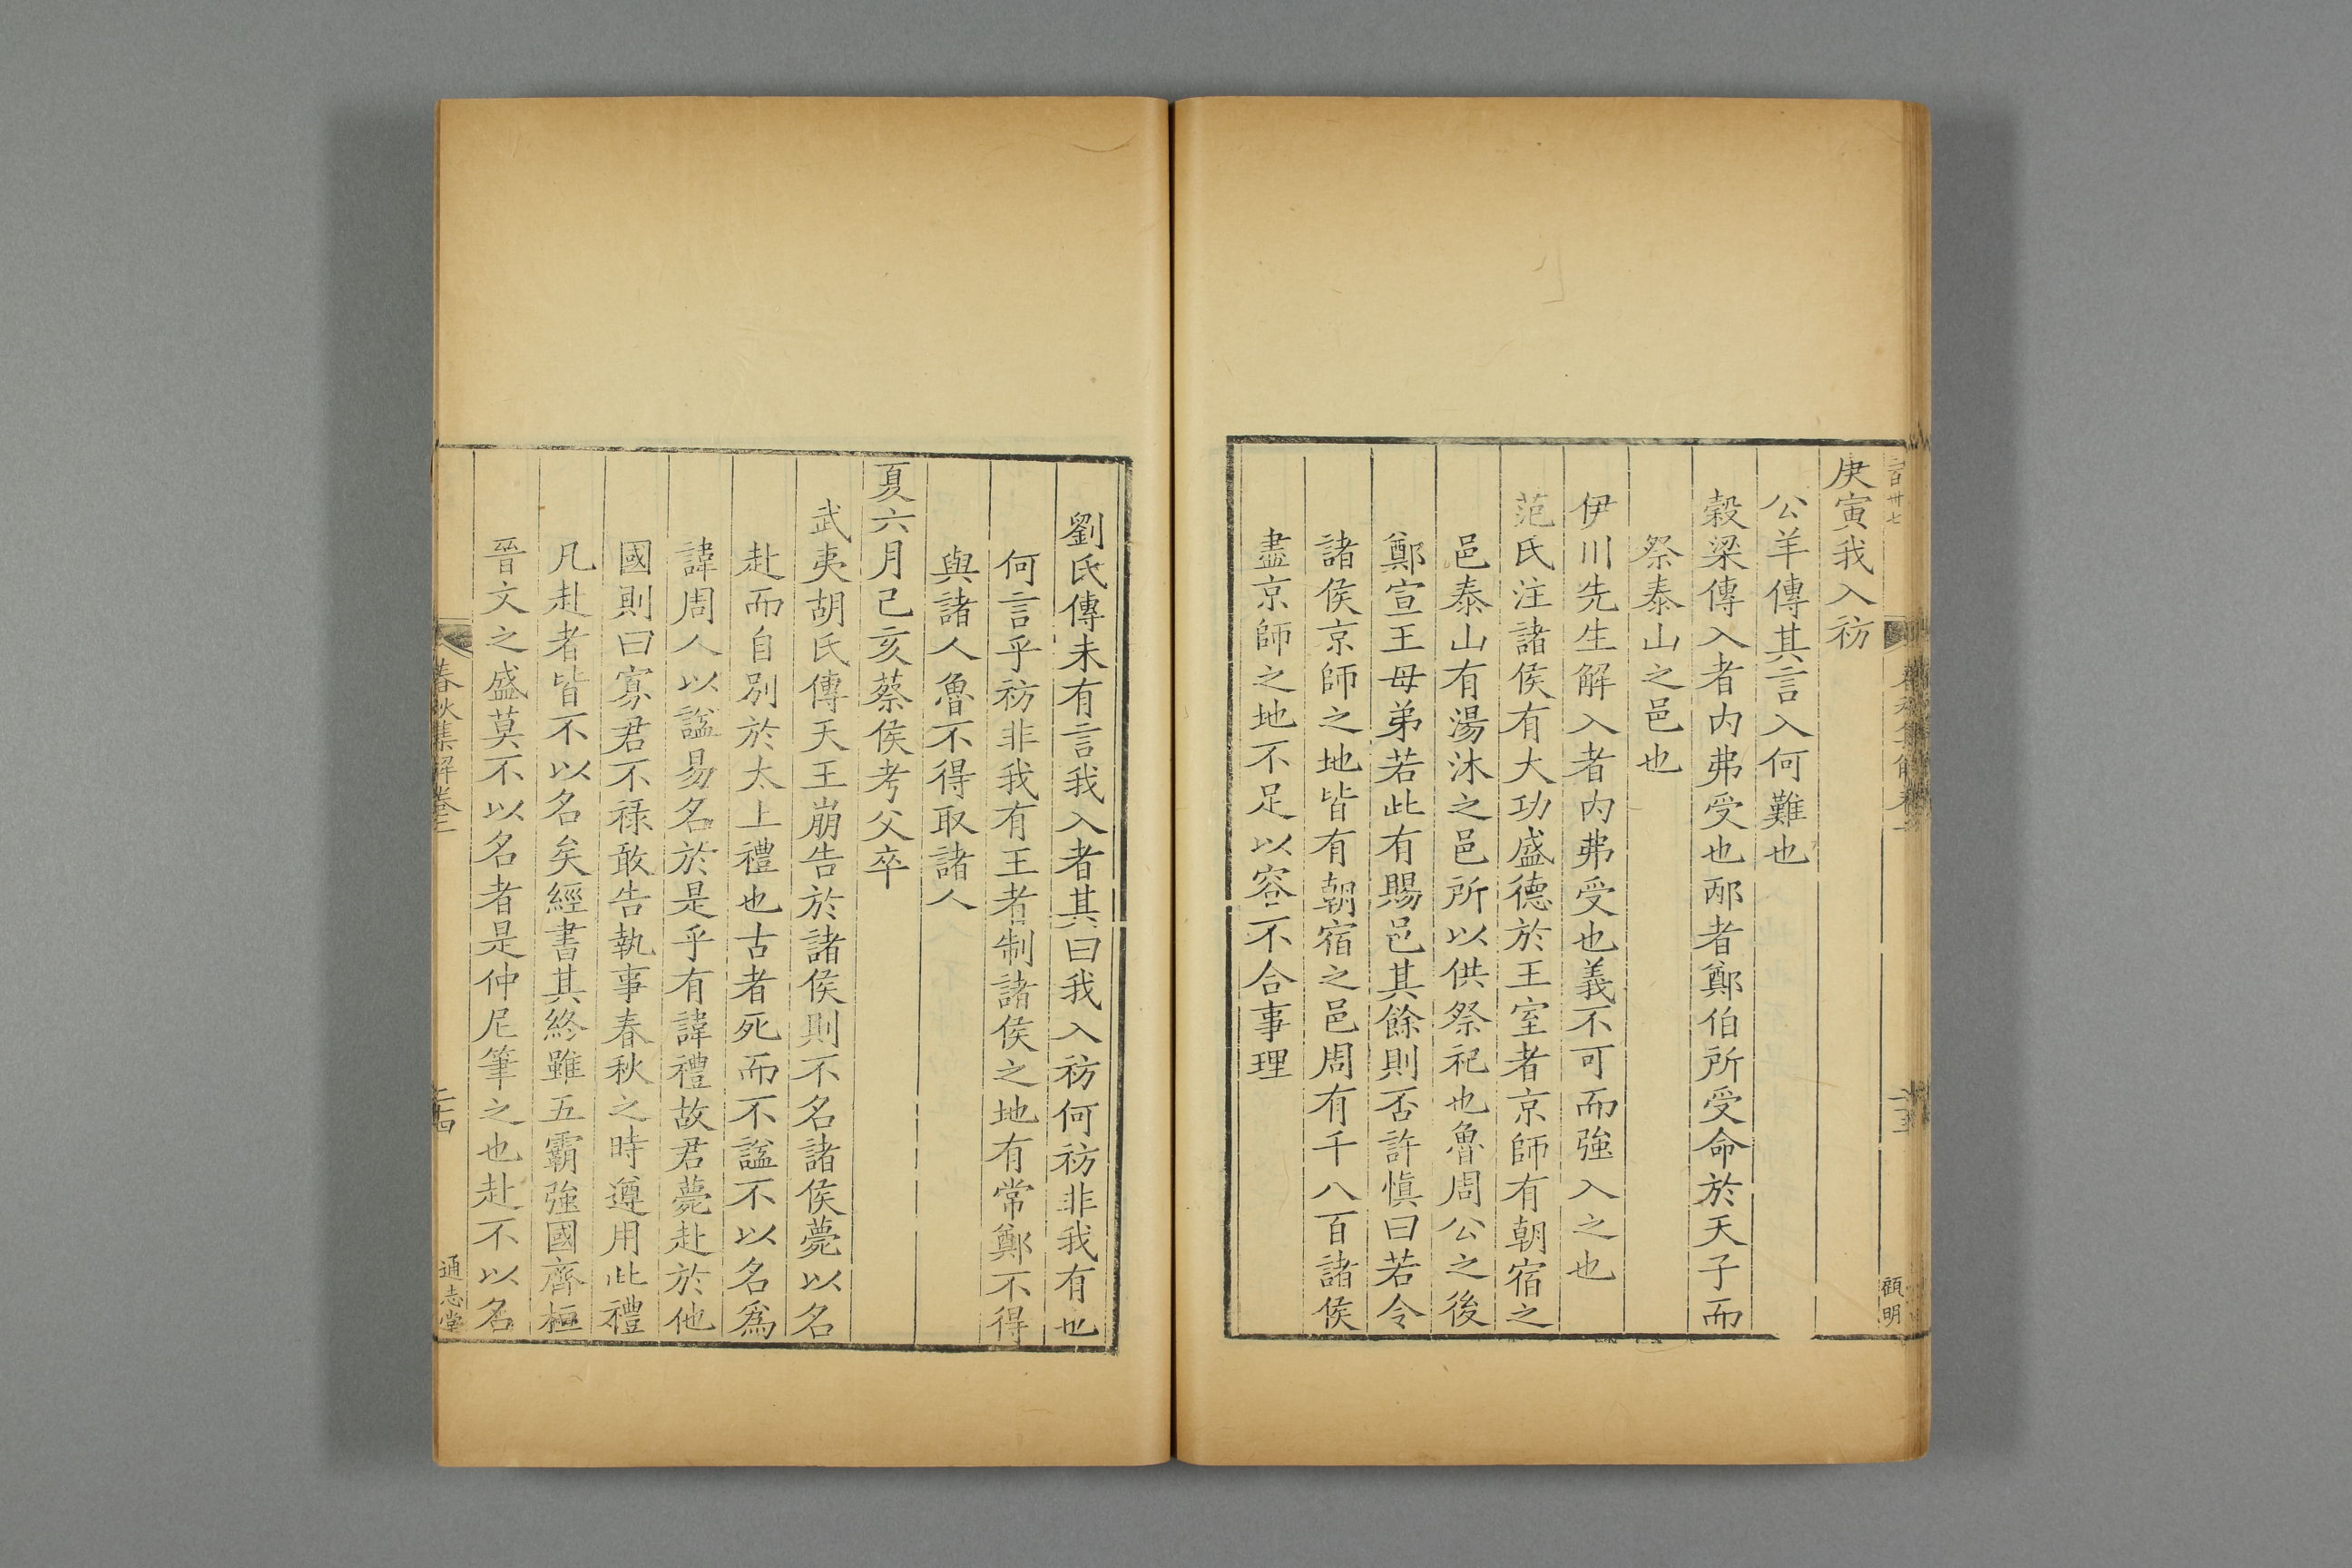 庚寅我入祊
公羊傳其言入何難也
穀梁傳入者内弗受也邴者鄭伯所受命於天子而
祭泰山之邑也
伊川先生解入者内弗受也義不可而強入之也
范氏注諸侯有大功盛德於王室者京師有朝宿之
邑泰山有湯沐之邑所以供祭祀也魯周公之後
鄭宣王母弟若此有賜邑其餘則否許慎曰若令
諸侯京師之地皆有朝宿之邑周有千八百諸侯
盡京師之地不足以容不合事理
顧明
劉氏傳未有言我入者其曰我入祊何祊非我有也
何言乎祊非我有王者制諸侯之地有常鄭不得
與諸人魯不得取諸人
夏六月己亥蔡侯考父卒
武夷胡氏傳天王崩告於諸侯則不名諸侯薨以名
赴而自別於太上禮也古者死而不諡不以名爲
諱周人以諡易名於是乎有諱禮故君薨赴於他
國則曰寡君不祿敢告執事春秋之時遵用此禮
凡赴者皆不以名矣經書其終雖五霸強國齊桓
晉文之盛莫不以名者是仲尼筆之也赴不以名
春秋集解卷二
二十四
通志堂